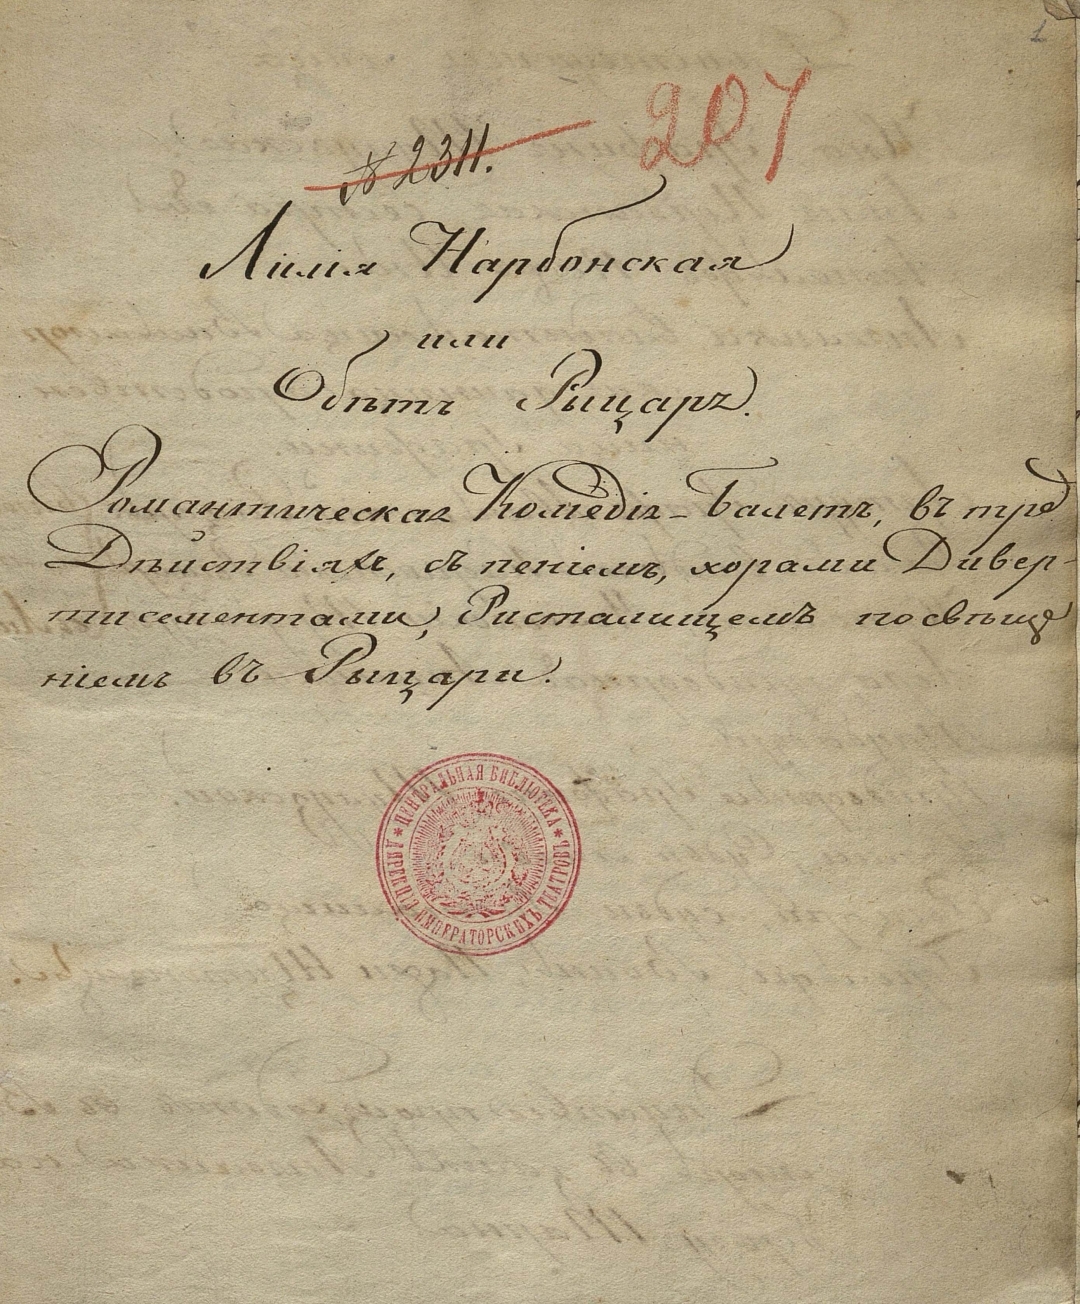 1
207
№ 2311.
Лилія Нарбонская
или
Обѣтъ Рыцаря.
Романтическая Комедія-Балетъ, въ трехъ
Дѣйствіяхъ, съ пеніемъ, хорами Дивер-
тисементами, Ристалищемъ посвѣще
ніемъ въ Рыцари.
ЦЕНТРАЛЬНАЯ БИБЛІОТЕКА
ИМПЕРАТОРСКИХЪ ТЕАТРОВЪ